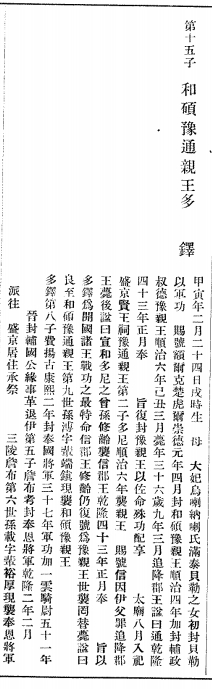 第十五子 和碩豫通親王多 鐸
甲寅年二月二十四日戌時生 母 大妃烏喇納喇氏滿泰貝勒之女初封貝勒
以軍功 賜號額爾克楚虎爾崇德元年四月封和碩豫親王順治四年加封輔政
叔德豫親王順治六年己丑三月薨年三十六歲九年三月追降郡王諡曰通乾隆
四十三年正月奉 旨復封豫親王以佐命殊功配享 太廟八月入祀
盛京賢王祠豫通親王第二子多尼順治六年襲親王 賜號信因伊父罪追降郡
王薨後諡曰宣和多尼之曾孫修齡襲信郡王乾隆四十三年正月奉 旨以
多鐸為開國諸王戰功之最特命信郡王修齡仍復號為豫親王世襲罔替薨諡曰
良至和碩豫通親王第九世孫溥字輩端鎮現襲和碩豫親王
多鐸第八子費揚古康熙二年封奉恩將軍三十七年軍功加一雲騎尉五十一年
晉封輔國公緣事革退伊第五子詹布考封奉恩將軍乾隆二年二月
派往 盛京居住承祭 三陵詹布第六世孫載字輩裕厚現襲奉恩將軍